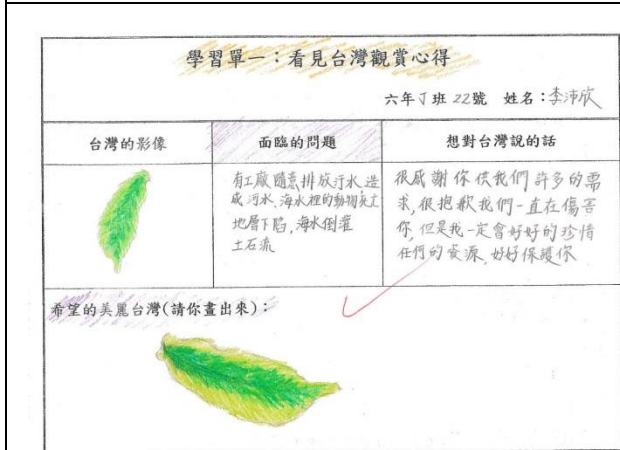 學習單一：看見台灣觀賞心得
六年丁班 22號 姓名：李沛欣
台灣的影像
面臨的問題
想對台灣說的話
有工廠隨意排放汙水造
成河水、海水裡的動物死亡
地層下陷,海水倒灌
土石流
很感謝你供我們許多的需
求,很抱歉我們一直在傷害
你,但是我一定會好好的珍惜
任何的資源,好好保護你
希望的美麗台灣(請你畫出來)：